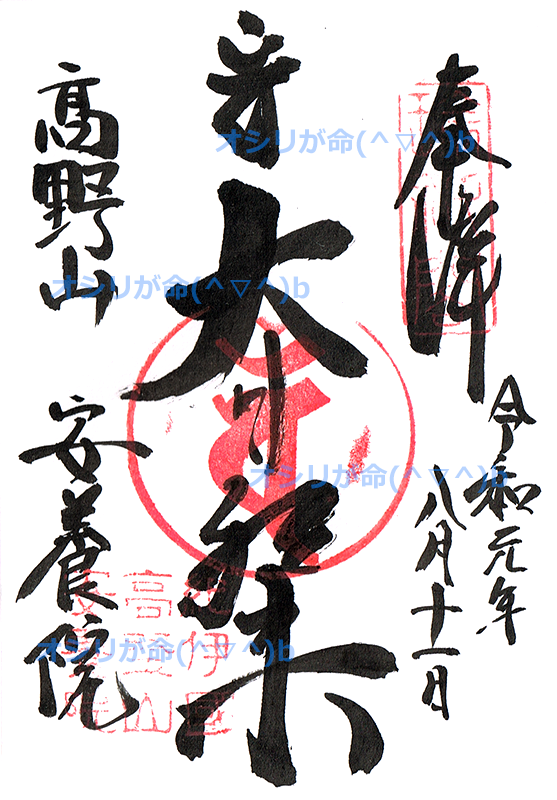 奉拝
令和元年
八月十一日
大日如来
高野山
安養院
紀伊國
高野山
安養院
オシリが命(^▽^)b
オシリが命(^▽^)b
オシリが命(^▽^)b
オシリが命(^▽^)b